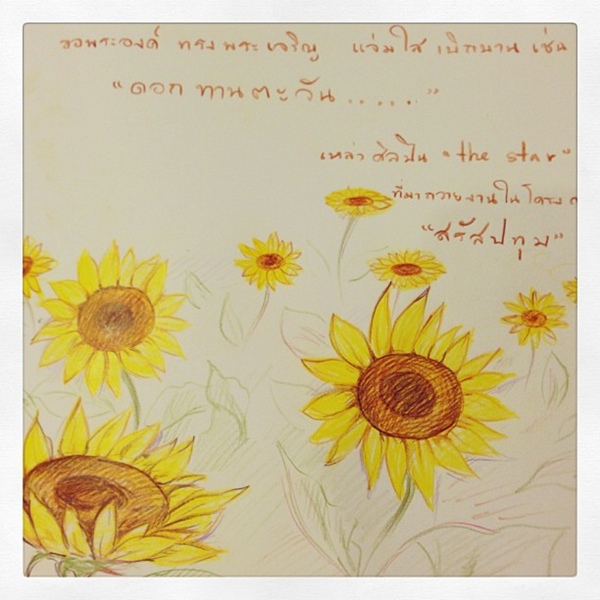 ขอพระองค์ ทรงพระเจริญ แจ่มใส เบิกบาน เช่น
"ดอก ทานตะวัน ......"
เหล่า ศิลปิน "the star"
ที่มาถวายงานในโครงก
"สระปทุม"